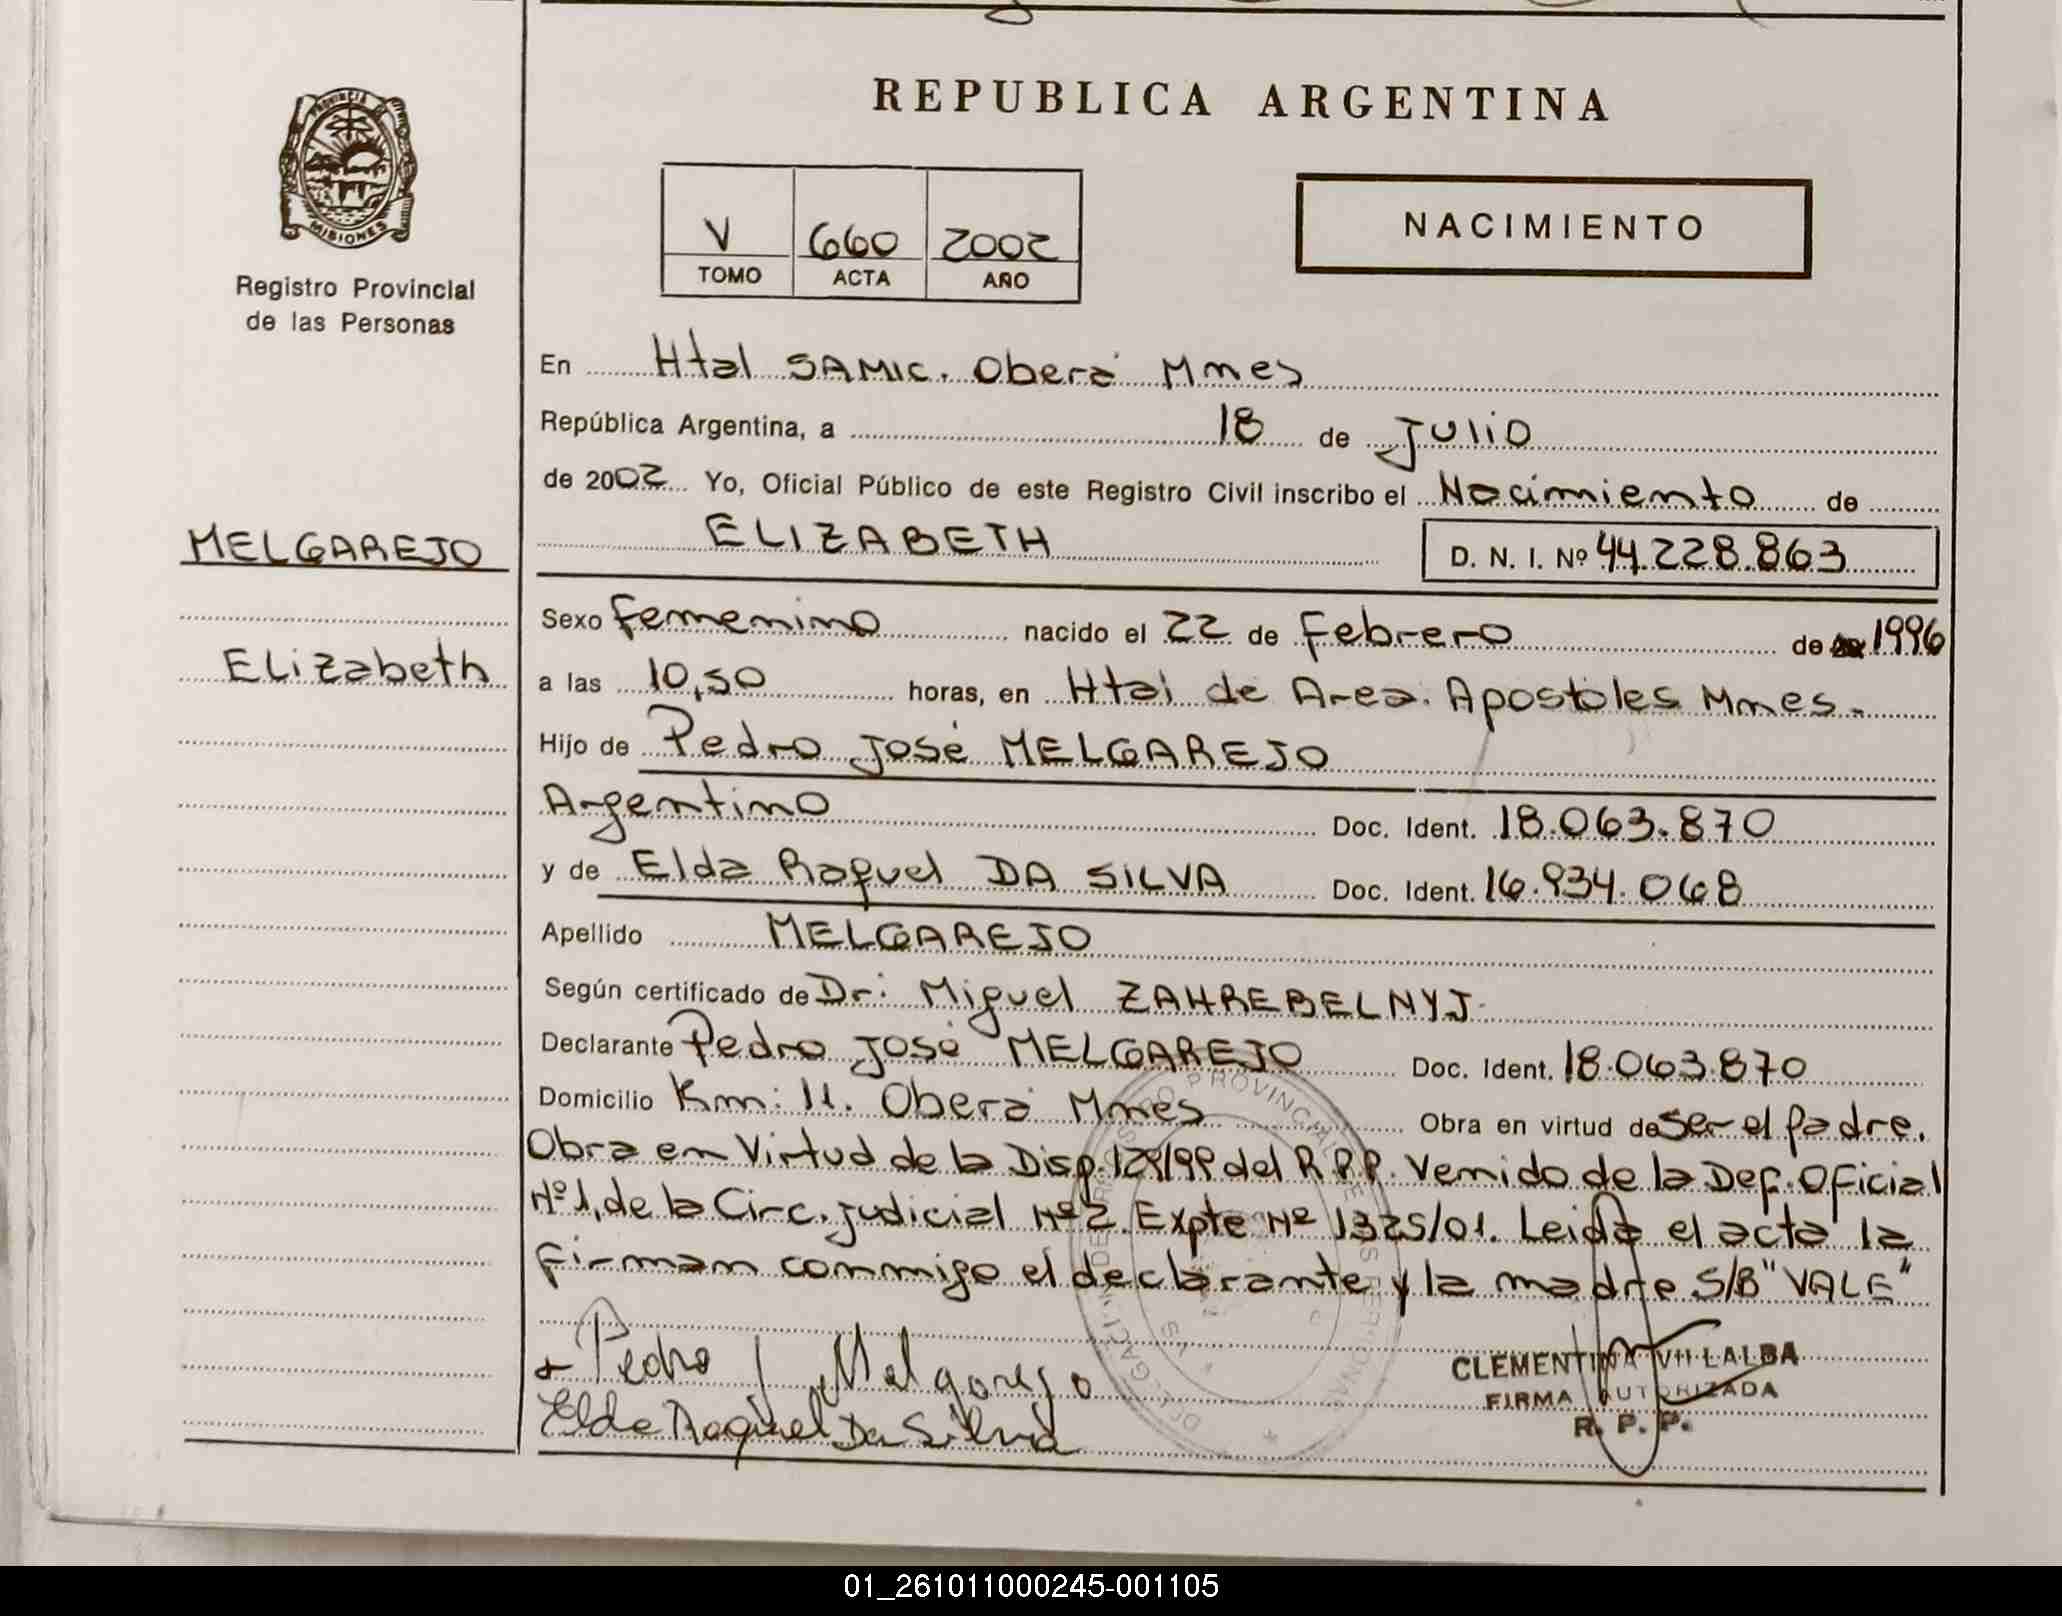 REPUBLICA ARGENTINA
PROVINCIA DE
MISIONES
Registro Provincial
de las Personas
V 660 2002
TOMO ACTA AÑO
NACIMIENTO
En Htal SAMIC. Oberá Mnes
República Argentina, a 18 de Julio
de 2002 Yo, Oficial Público de este Registro Civil inscribo el Nacimiento de
ELIZABETH D. N. I. Nº 44.228.863
MELGAREJO
Elizabeth
Sexo Femenino nacido el 22 de Febrero de 1996
a las 10,50 horas, en Htal de Area. Apostoles Mnes.
Hijo de Pedro José MELGAREJO
Argentino Doc. Ident. 18.063.870
y de Elda Raquel DA SILVA Doc. Ident. 16.934.068
Apellido MELGAREJO
Según certificado de Dr: Miguel ZAHREBELNYJ.
Declarante Pedro José MELGAREJO Doc. Ident. 18.063.870
Domicilio Km: 11. Oberá Mnes Obra en virtud de ser el padre.
Obra en Virtud de la Disp. 129/99 del R.P.P. Venido de la Def. Oficial
Nº 1, de la Circ. judicial Nº 2. Expte Nº 1325/01. Leida el acta la
firman conmigo el declarante y la madre S/B "VALE"
Pedro J Melgarejo
Elda Raquel Da Silva
CLEMENTINA VILLALBA
FIRMA AUTORIZADA
R. P. P.
01_261011000245-001105